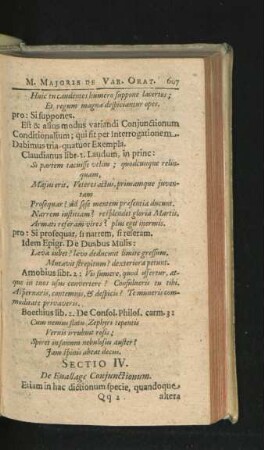 M. MAJORIS DE VAR. ORAT. 607
Huic tu candentes humero suppone lacertus;
Et regum magna despiciantur opes.
pro: Si suppones.
Est & alius modus variandi Conjunctionum
Conditionalium; qui fit per Interrogationem.
Dabimus tria-quatuor Exempla.
Claudianus libr. 1. Laudum, in princ:
Si partem tacuisse velim; quodcumque relin-
quam,
Major erit. Veteres actus, primamque juven-
tam
Prosequar? ad sese mentem præsentia ducunt.
Narrem justitiam? resplendet gloria Martis.
Armati referam vires? plus egit inermis.
pro: Si prosequar, si narrem, si referam.
Idem Epigr. De Duobus Mulis:
Læva jubet? læva dedecet timidè gressus,
Mutavit strepitum? dexteriora petunt.
Arnobius libr. 2: Vis sumere, quod offertur, at-
que in tuos usus convertere? Consulueris tu tibi.
Aspernaris, contemnis, & despicis? Te muneris com-
moditate privaveris.
Boethius lib. 2. De Consol. Philos. carm. 3:
Cum nemus flatu Zephyri tepentis
Vernis irrubuit rosis;
Spiret insanum nebulosus auster?
Jam spinis abeat decus.
SECTIO IV.
De Enallage Conjunctionum.
Etiam in hac dictionum specie, quandoque
Qq 2 altera